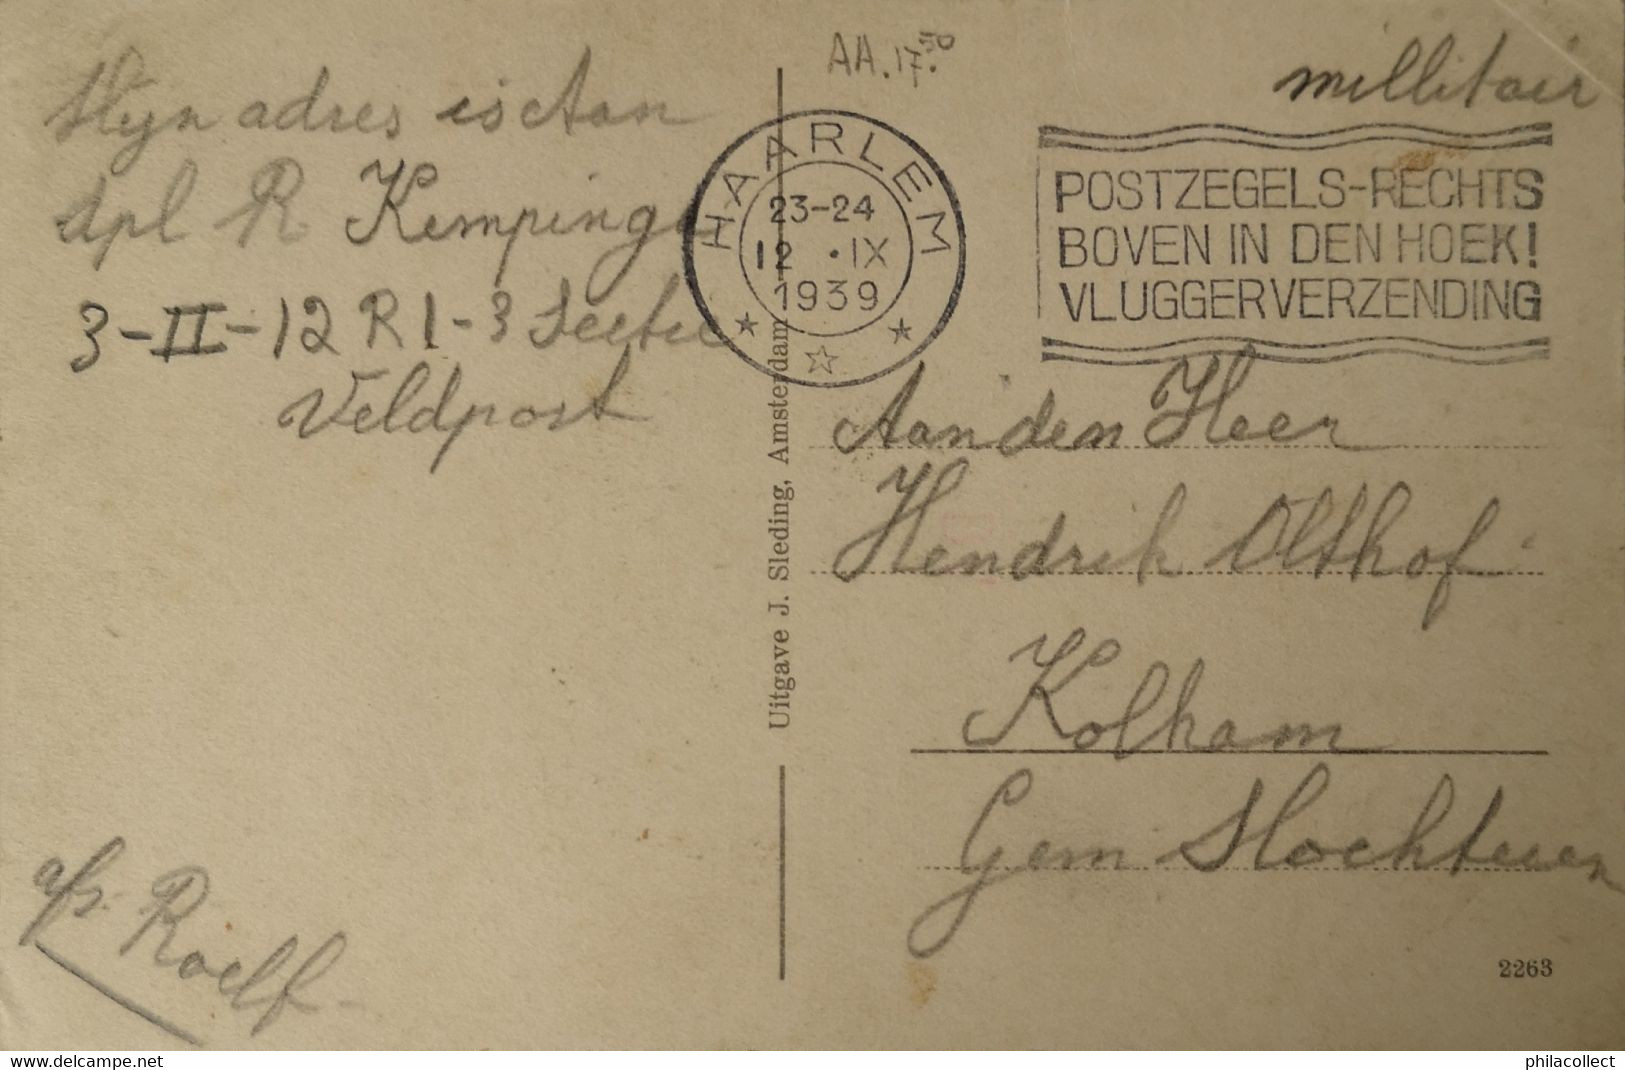 AA.17.50
millitair
Mijn adres is Aan
dpl R. Kempinga
3-II-12 R I-3 Sectie
Veldpost
HAARLEM
23-24
12 .IX
1939
POSTZEGELS-RECHTS
BOVEN IN DEN HOEK!
VLUGGER VERZENDING
Aan den Heer
Hendrik Olthof
Kolham
Gem Slochteren
afz. Roelf
Uitgave J. Sleding, Amsterdam
2263
Collect and sell on delcampe.net
philacollect